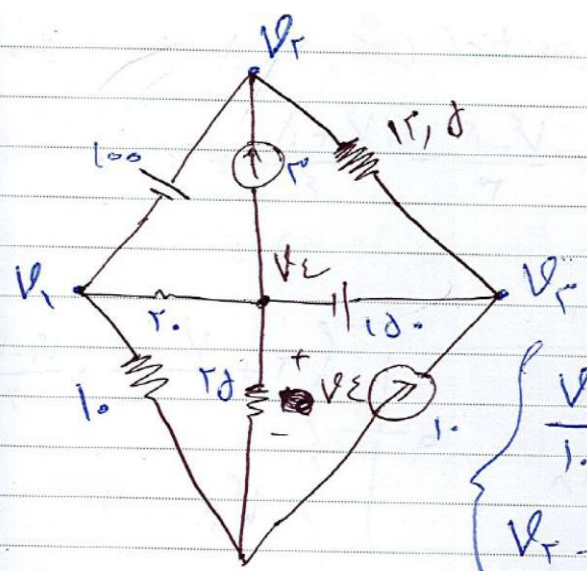 V۲
۱۲,۵
۱۰۰
۳
V۱
V٤
V۳
۲۰
۱۵۰
۱۰
۲۵
+
V٤
-
۱۰
V
۱۰
V۲ -